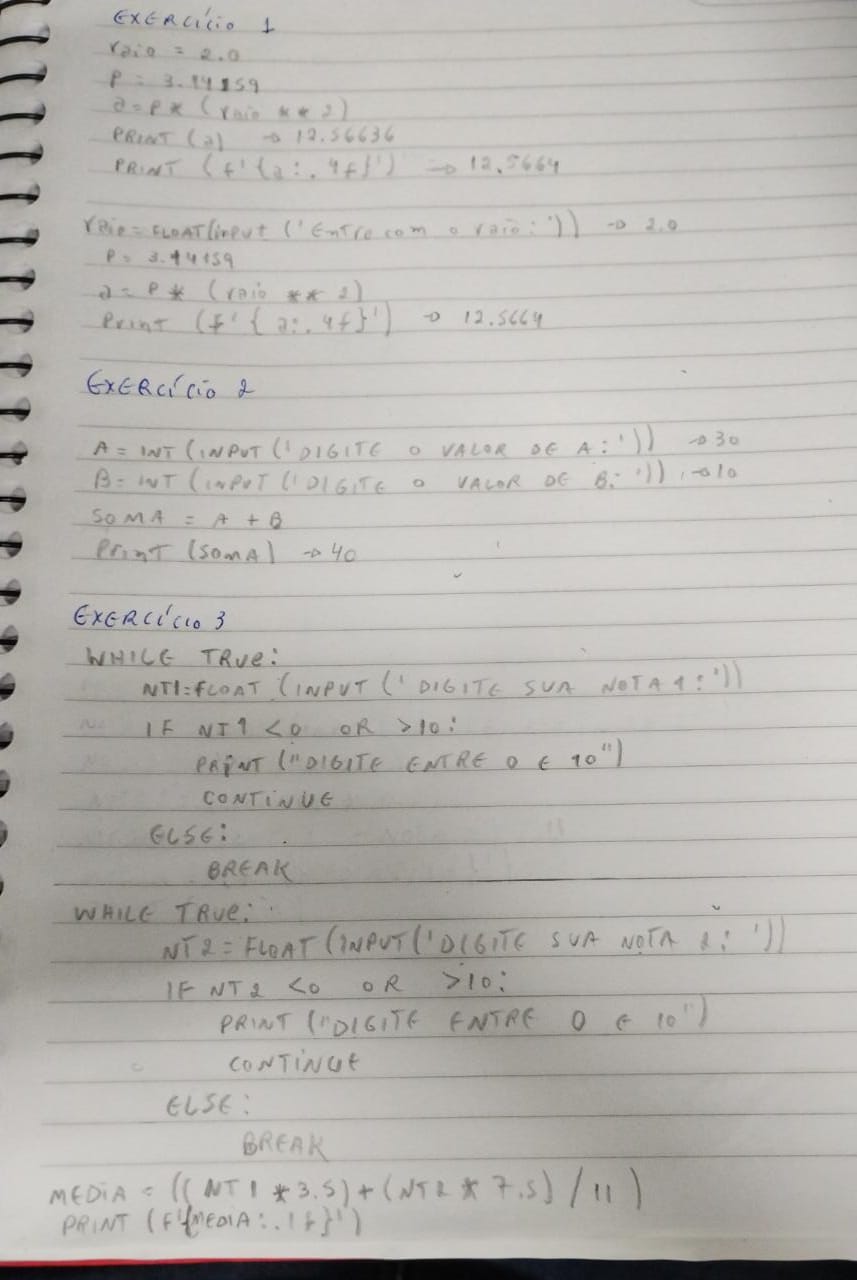 EXERCÍCIO 1
raio = 2.0
P = 3.14159
a = P * (raio ** 2)
PRINT (a) → 12.56636
PRINT (f'{a:.4f}') → 12,5664
raio = FLOAT(input ('Entre com o raio:')) → 2.0
P = 3.14159
a = P * (raio ** 2)
Print (f'{a:.4f}') → 12.5664
EXERCÍCIO 2
A = INT (INPUT ('DIGITE O VALOR DE A:')) → 30
B = INT (INPUT ('DIGITE O VALOR DE B:')) → 10
SOMA = A + B
Print (SOMA) → 40
EXERCÍCIO 3
WHILE TRUE:
NT1=FLOAT (INPUT ('DIGITE SUA NOTA 1:'))
IF NT1 <0 OR >10:
PRINT ("DIGITE ENTRE 0 E 10")
CONTINUE
ELSE:
BREAK
WHILE TRUE:
NT2 = FLOAT (INPUT('DIGITE SUA NOTA 2: '))
IF NT2 <0 OR >10:
PRINT ("DIGITE ENTRE 0 E 10")
CONTINUE
ELSE:
BREAK
MEDIA = ((NT1 * 3.5) + (NT2 * 7.5) / 11)
PRINT (F'{MEDIA:.1f}')